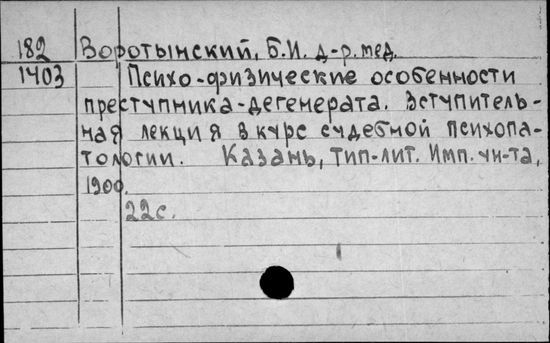 182 Воротынский, Б.И. д-р.мед.
1403 Психо-физические особенности
преступника-дегенерата. Вступитель-
ная лекция в курс судебной психопа-
тологии. Казань, тип-лит. Имп. ун-та,
1900.
22с.